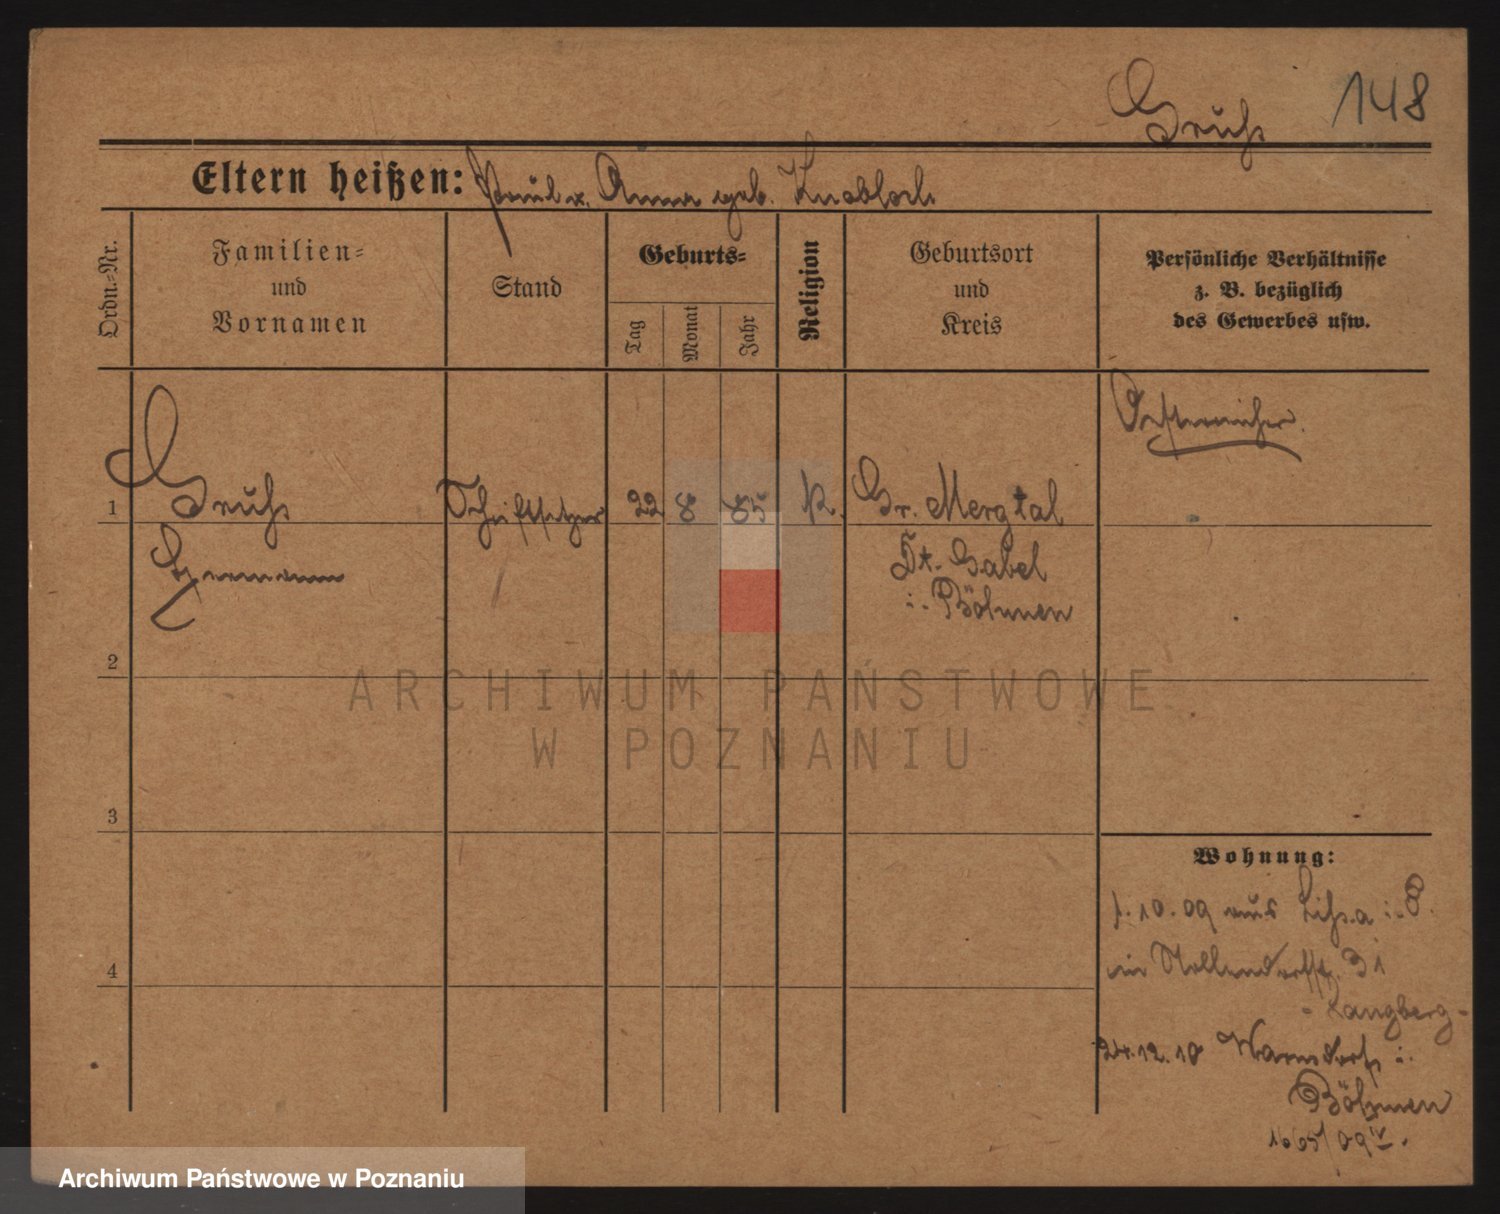 Gruhs 148
Eltern heißen: Paul u. Anna geb. Knobloch
Ordn.-Nr.
Familien-
und
Vornamen
Stand
Geburts-
Tag
Monat
Jahr
Religion
Geburtsort
und
Kreis
Persönliche Verhältnisse
z. B. bezüglich
des Gewerbes usw.
Oesterreicher.
1 Gruhs Schriftsetzer 22 8 85 K. Gr. Mergtal
Hermann Bz. Gabel
i. Böhmen
2
ARCHIWUM PAŃSTWOWE
W POZNANIU
3
Wohnung:
1.10.09 aus Lissa i. P.
in Nollendorfstr. 31
- Langberg -
4
24.12.10 Warnsdorf i.
Böhmen
1665/09 IV.
Archiwum Państwowe w Poznaniu